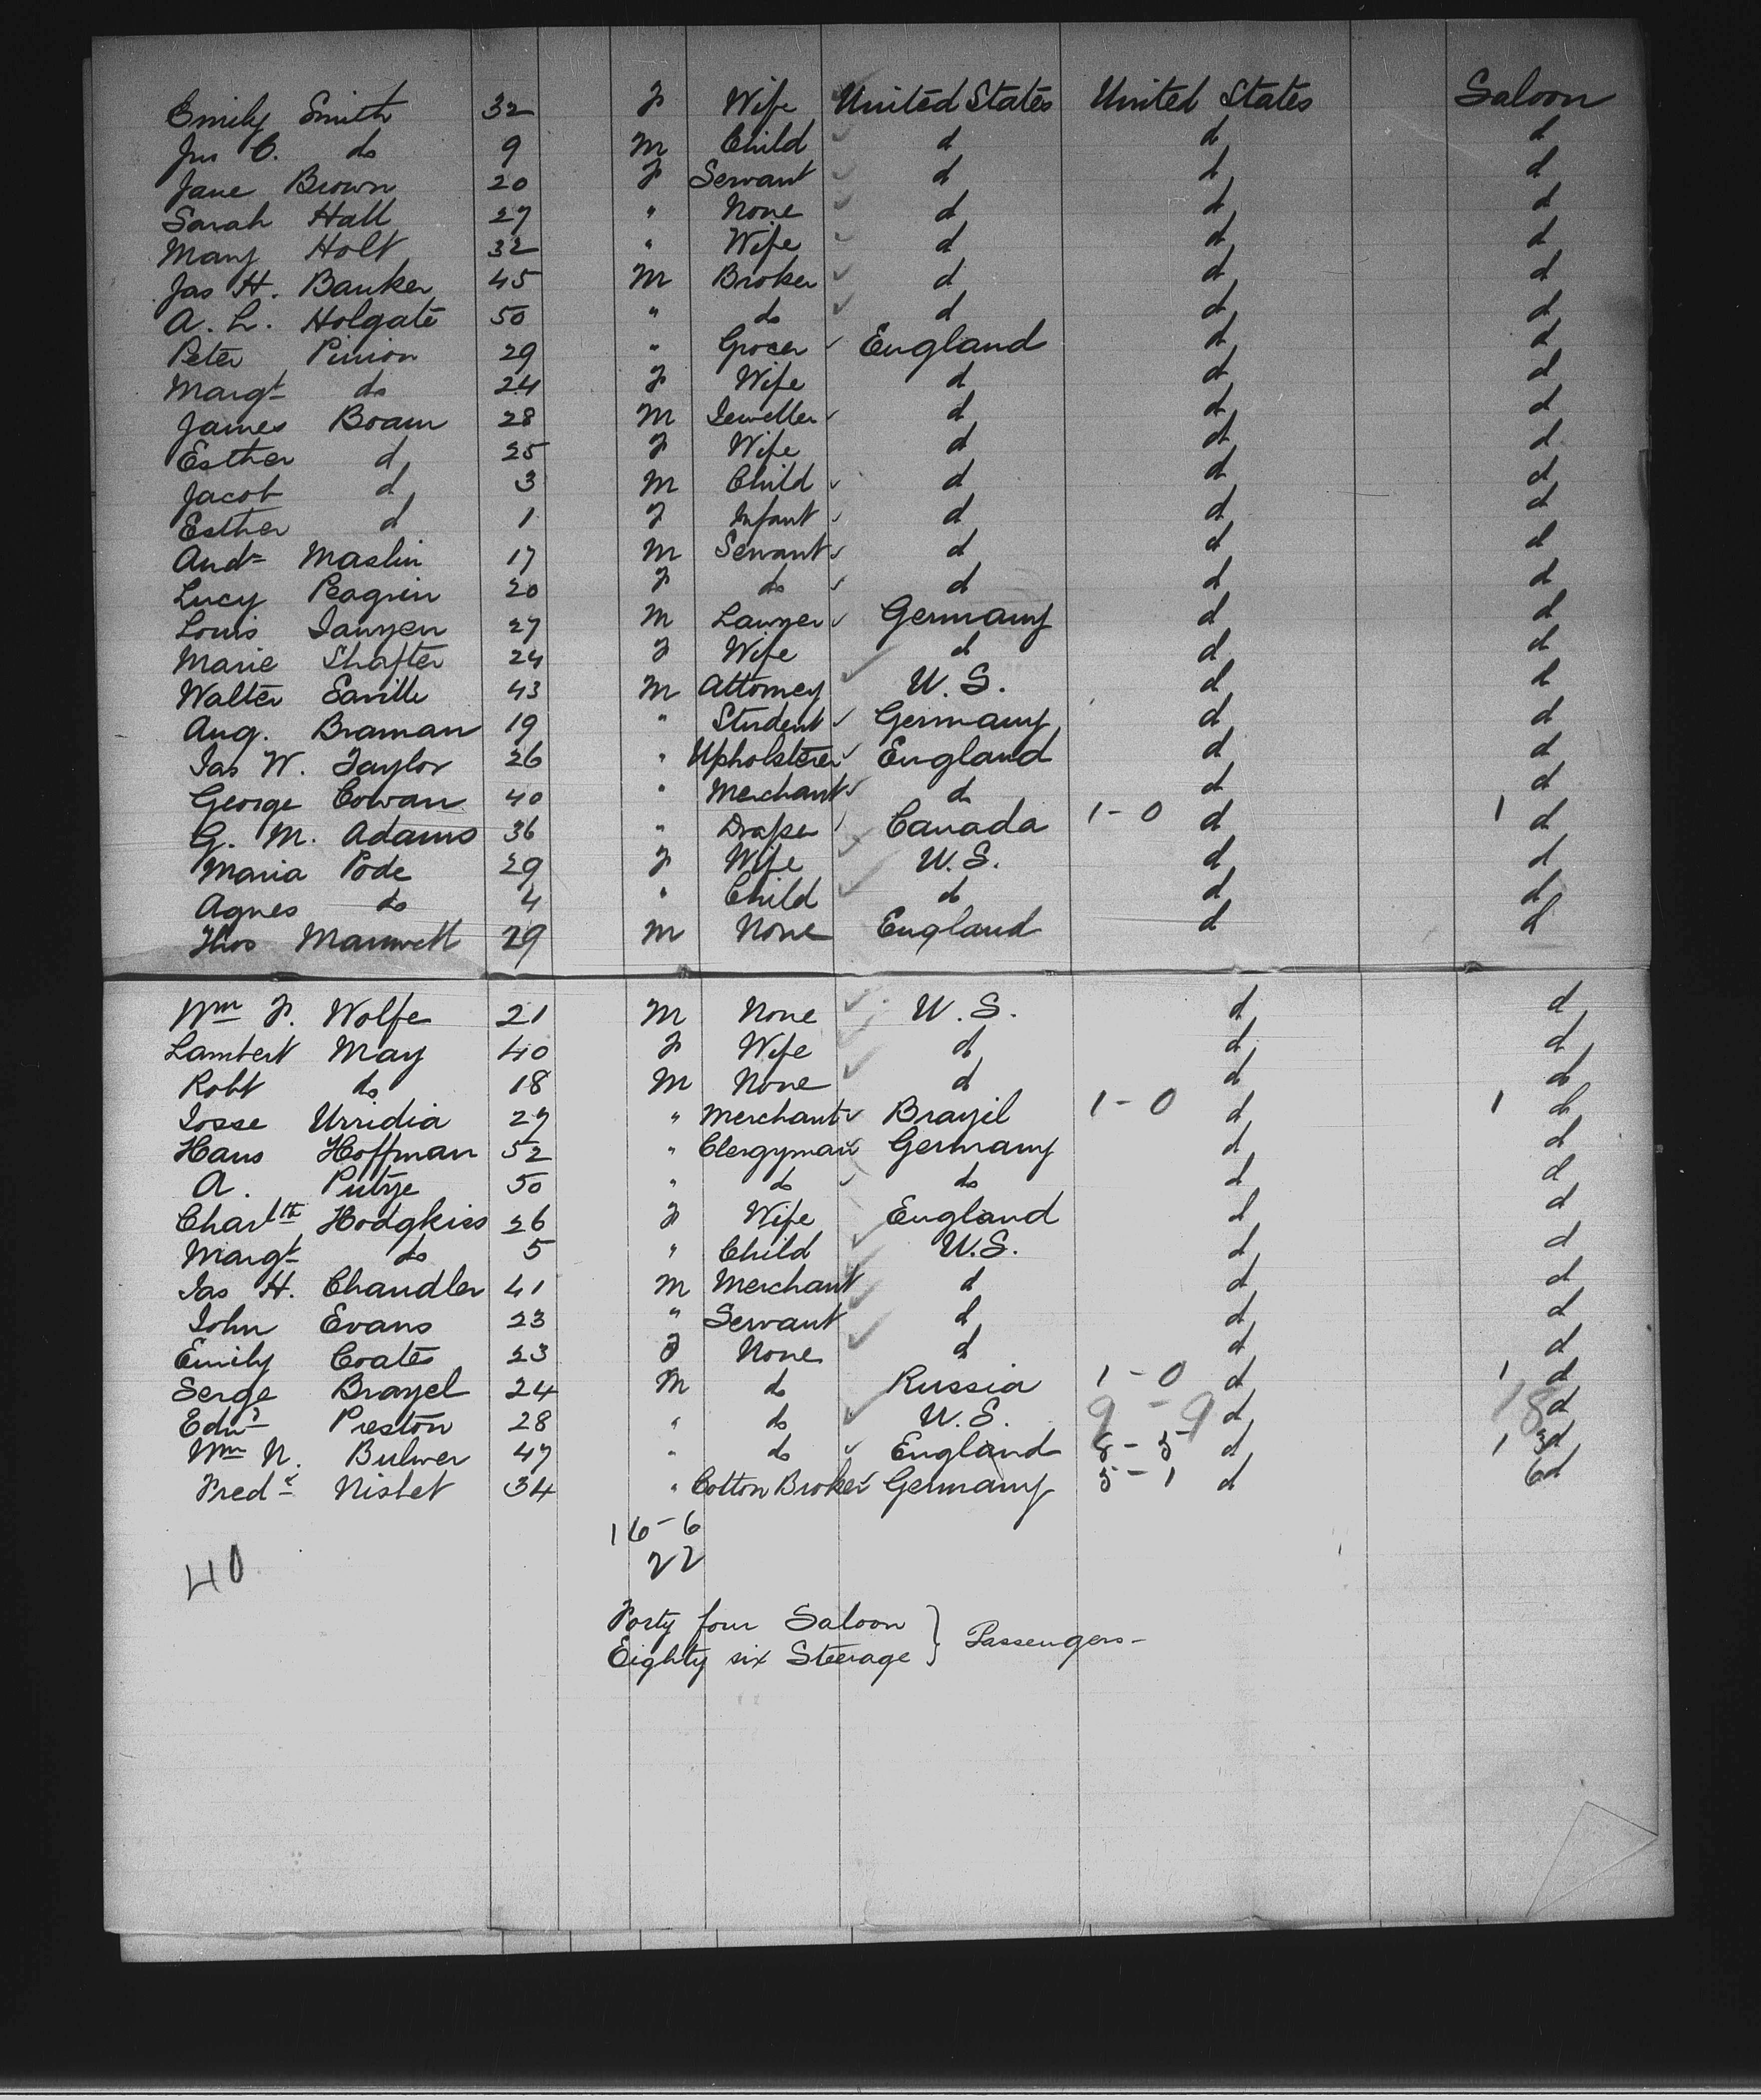 Emily Smith 32 F Wife United States United States Saloon
Jno C. do 9 M Child d d d
Jane Brown 20 F Servant d d d
Sarah Hall 27 " None d d d
Mary Holt 32 " Wife d d d
Jas H. Banker 45 M Broker d d d
A. L. Holgate 50 " do d d d
Peter Pinion 29 " Grocer England d d
Margt do 24 F Wife d d d
James Boam 28 M Jeweller d d d
Esther d 25 F Wife d d d
Jacob d 3 M Child d d d
Esther d 1 F Infant d d d
Andw Maslin 17 M Servant d d d
Lucy 20 F do d d d
Louis Janzen 27 M Lawyer Germany d d
Marie Shafter 24 F Wife d d d
Walter Saville 43 M Attorney U.S. d d
Aug. Braman 19 " Student Germany d d
Jas W. Taylor 26 " Upholsterer England d d
George Cowan 40 " Merchant d d d
G. M. Adams 36 " Draper Canada 1-0 d 1 d
Maria Pode 29 F Wife U.S. d d
Agnes do 4 " Child do d d
Thos Manwell 29 M None England d d
Wm F. Wolfe 21 M None U.S. d d
Lambert May 40 F Wife d d d
Robt do 18 M None d d do
Josse Urridia 27 " Merchant Brazil 1-0 d 1 d
Hans Hoffman 52 " Clergyman Germany d d
A. Putze 50 " do do d d
Charltte Hodgkiss 26 F Wife England d d
Margt do 5 " Child U.S. d d
Jas H. Chandler 41 M Merchant d d d
John Evans 23 " Servant d d d
Emily Coates 23 F None d d d
Serge Brazel 24 M do Russia 1-0 d 1 d
Edwd Preston 28 " do U.S. 9-9 d 18 d
Wm N. Bulwer 47 " do England 8-5 d 1 3 d
Fredk Nisbet 34 " Cotton Broker Germany 5-1 d 6 d
16-6
22
40
Forty four Saloon } Passengers-
Eighty six Steerage